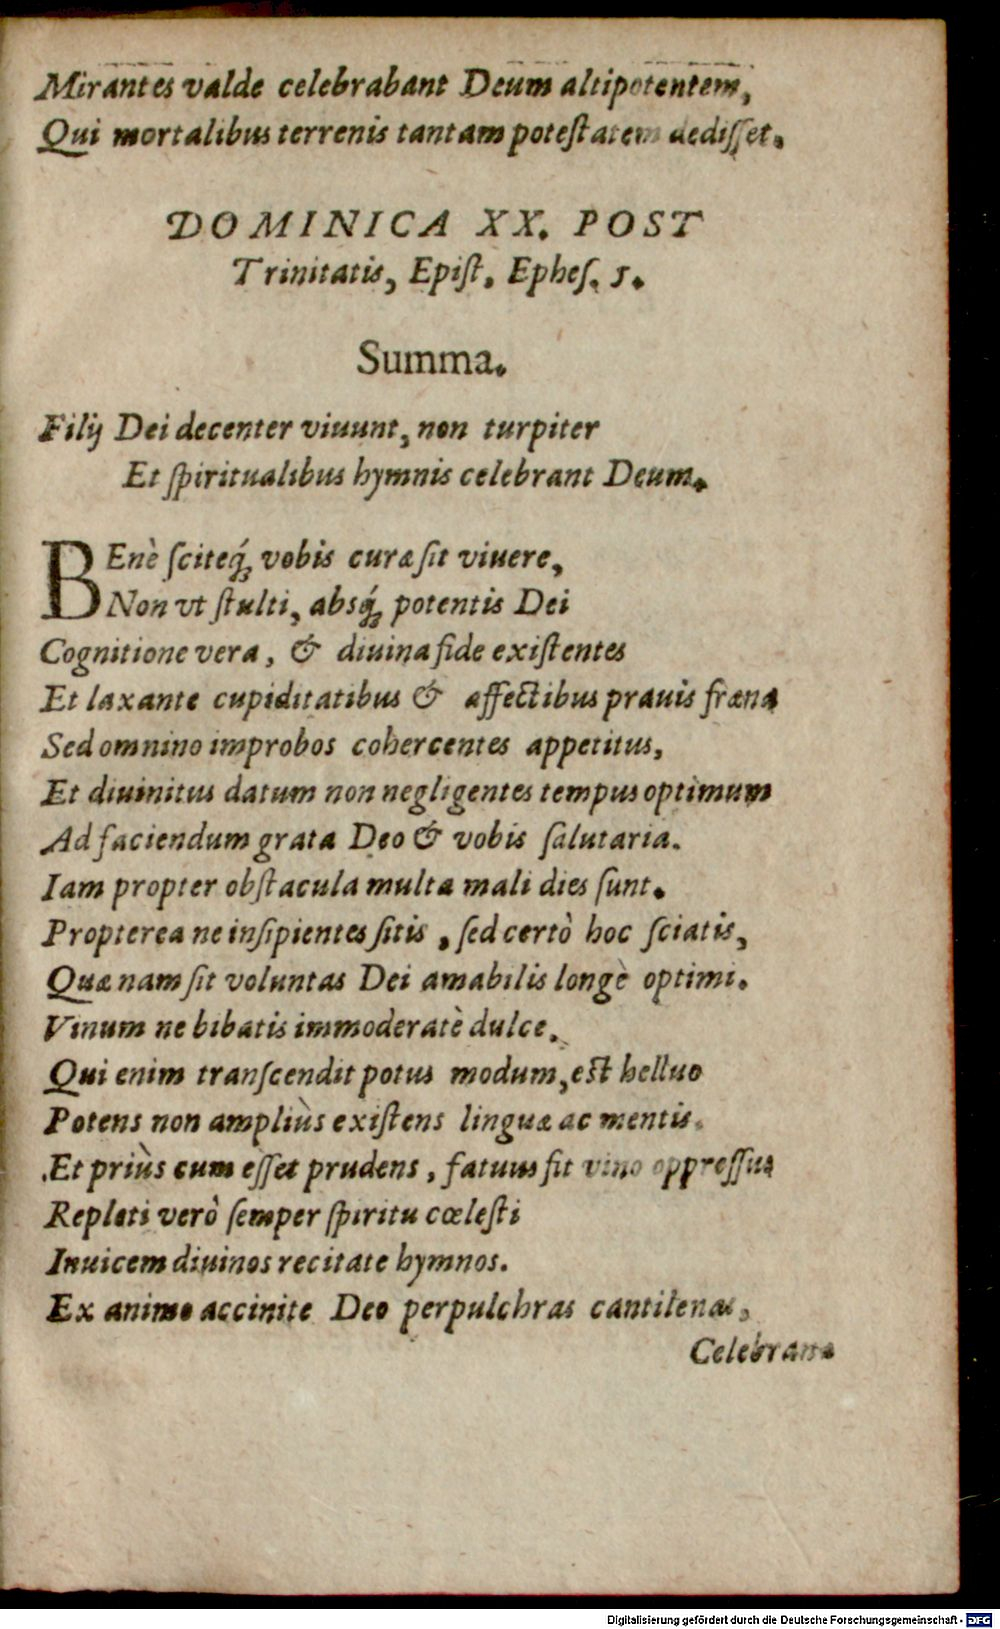 Mirantes valde celebrabant Deum altipotentem,
Qui mortalibus terrenis tantam poteſtatem dediſſet.
DOMINICA XX. POST
Trinitatis, Epiſt. Epheſ. 5.
Summa.
Filij Dei decenter viuunt, non turpiter
Et ſpiritualibus hymnis celebrant Deum.
BEnè ſciteq́; vobis curæ ſit viuere,
Non vt ſtulti, absq́; potentis Dei
Cognitione vera, & diuina fide exiſtentes
Et laxante cupiditatibus & affectibus prauis fræna
Sed omnino improbos cohercentes appetitus,
Et diuinitus datum non negligentes tempus optimum
Ad faciendum grata Deo & vobis ſalutaria.
Iam propter obſtacula multa mali dies ſunt.
Propterea ne inſipientes ſitis, ſed certò hoc ſciatis,
Quæ nam ſit voluntas Dei amabilis longè optimi.
Vinum ne bibatis immoderatè dulce.
Qui enim tranſcendit potus modum, eſt helluo
Potens non ampliùs exiſtens linguæ ac mentis.
Et priùs cum eſſet prudens, fatuus fit vino oppreſſus
Repleti verò ſemper ſpiritu cœleſti
Inuicem diuinos recitate hymnos.
Ex animo accinite Deo perpulchras cantilenas,
Celebran
Digitalisierung gefördert durch die Deutsche Forschungsgemeinschaft - DFG